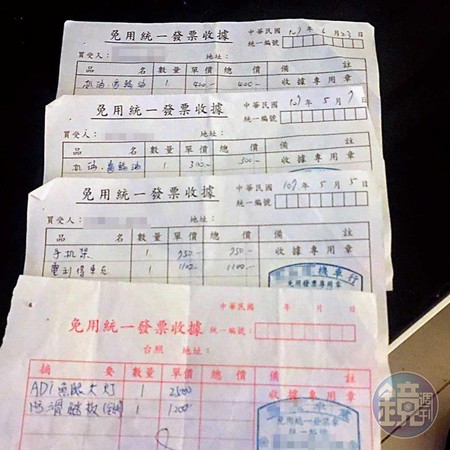 免用統一發票收據
中華民國 109年6月23日
統一編號
買受人： 地址：
品名 數量 單價 總價 備註
機油.齒輪油 1 400- 400- 收據專用章
免用統一發票收據
中華民國 109年5月9日
統一編號
買受人： 地址：
品名 數量 單價 總價 備註
機油.齒輪油 1 300- 300- 收據專用章
免用統一發票收據
中華民國 109年5月5日
統一編號
買受人： 地址：
品名 數量 單價 總價 備註
手机架 1 950- 950- 收據專用章
1 1100- 1100-
機車行
免用發票專用章
中華民國 年 月 日
免用統一發票收據
統一編號：
台照 地址：
摘要 數量 單價 總價 備註
ADI魚眼大灯 1 2500 收據專用章
防滑踏板 1 1200
免用統一發票
統一編號
鏡週刊